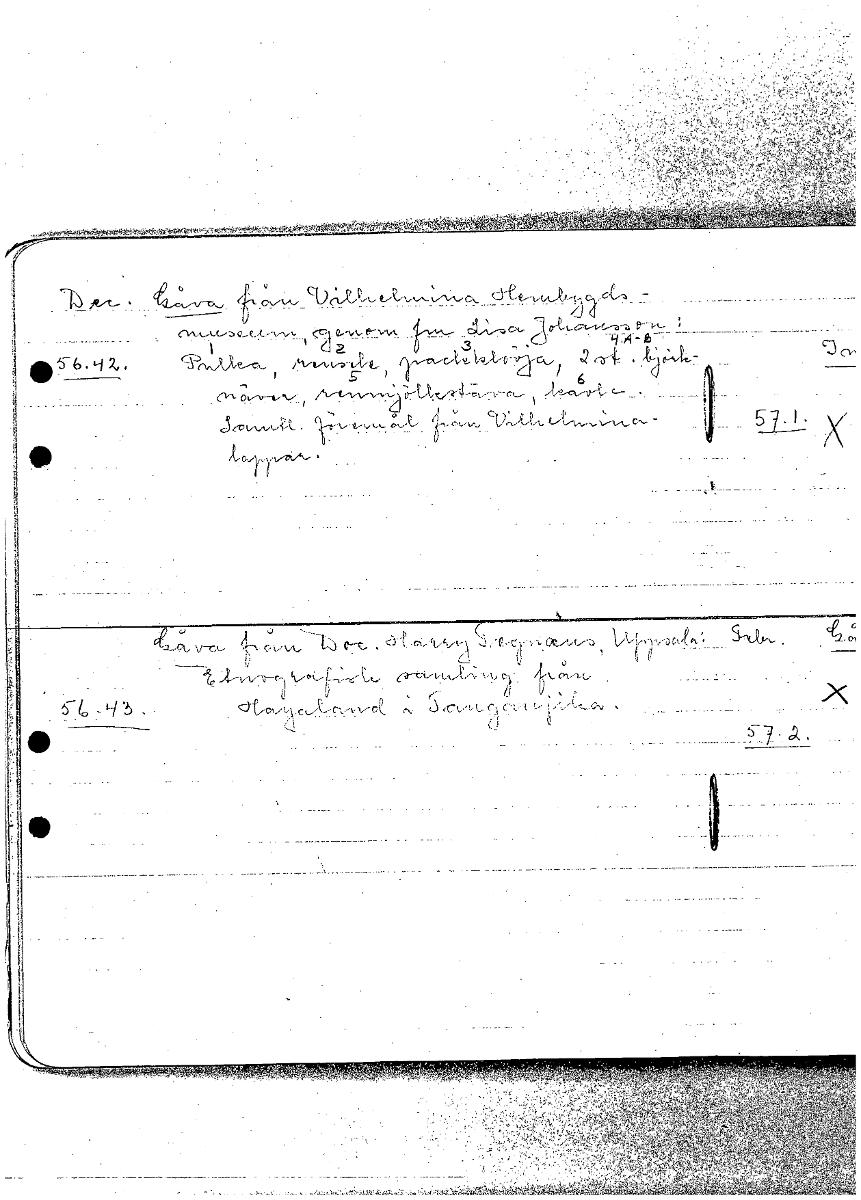 Dec. Gåva från Vilhelmina Hembygds-
museum, genom fru Lisa Johansson:
1 2 3 4A-B
56.42. Pulka, rensele, packklövja, 2 st. björk-
5 6
näver, renmjölkstäva, kavle.
Samtl. föremål från Vilhelmina-
lappar.
Gåva från Doc. Harry Tegnæus, Uppsala:
Etnografisk samling från
56.43. Hayaland i Tanganjika.
57.1. X
Febr. Gå
X
57.2.